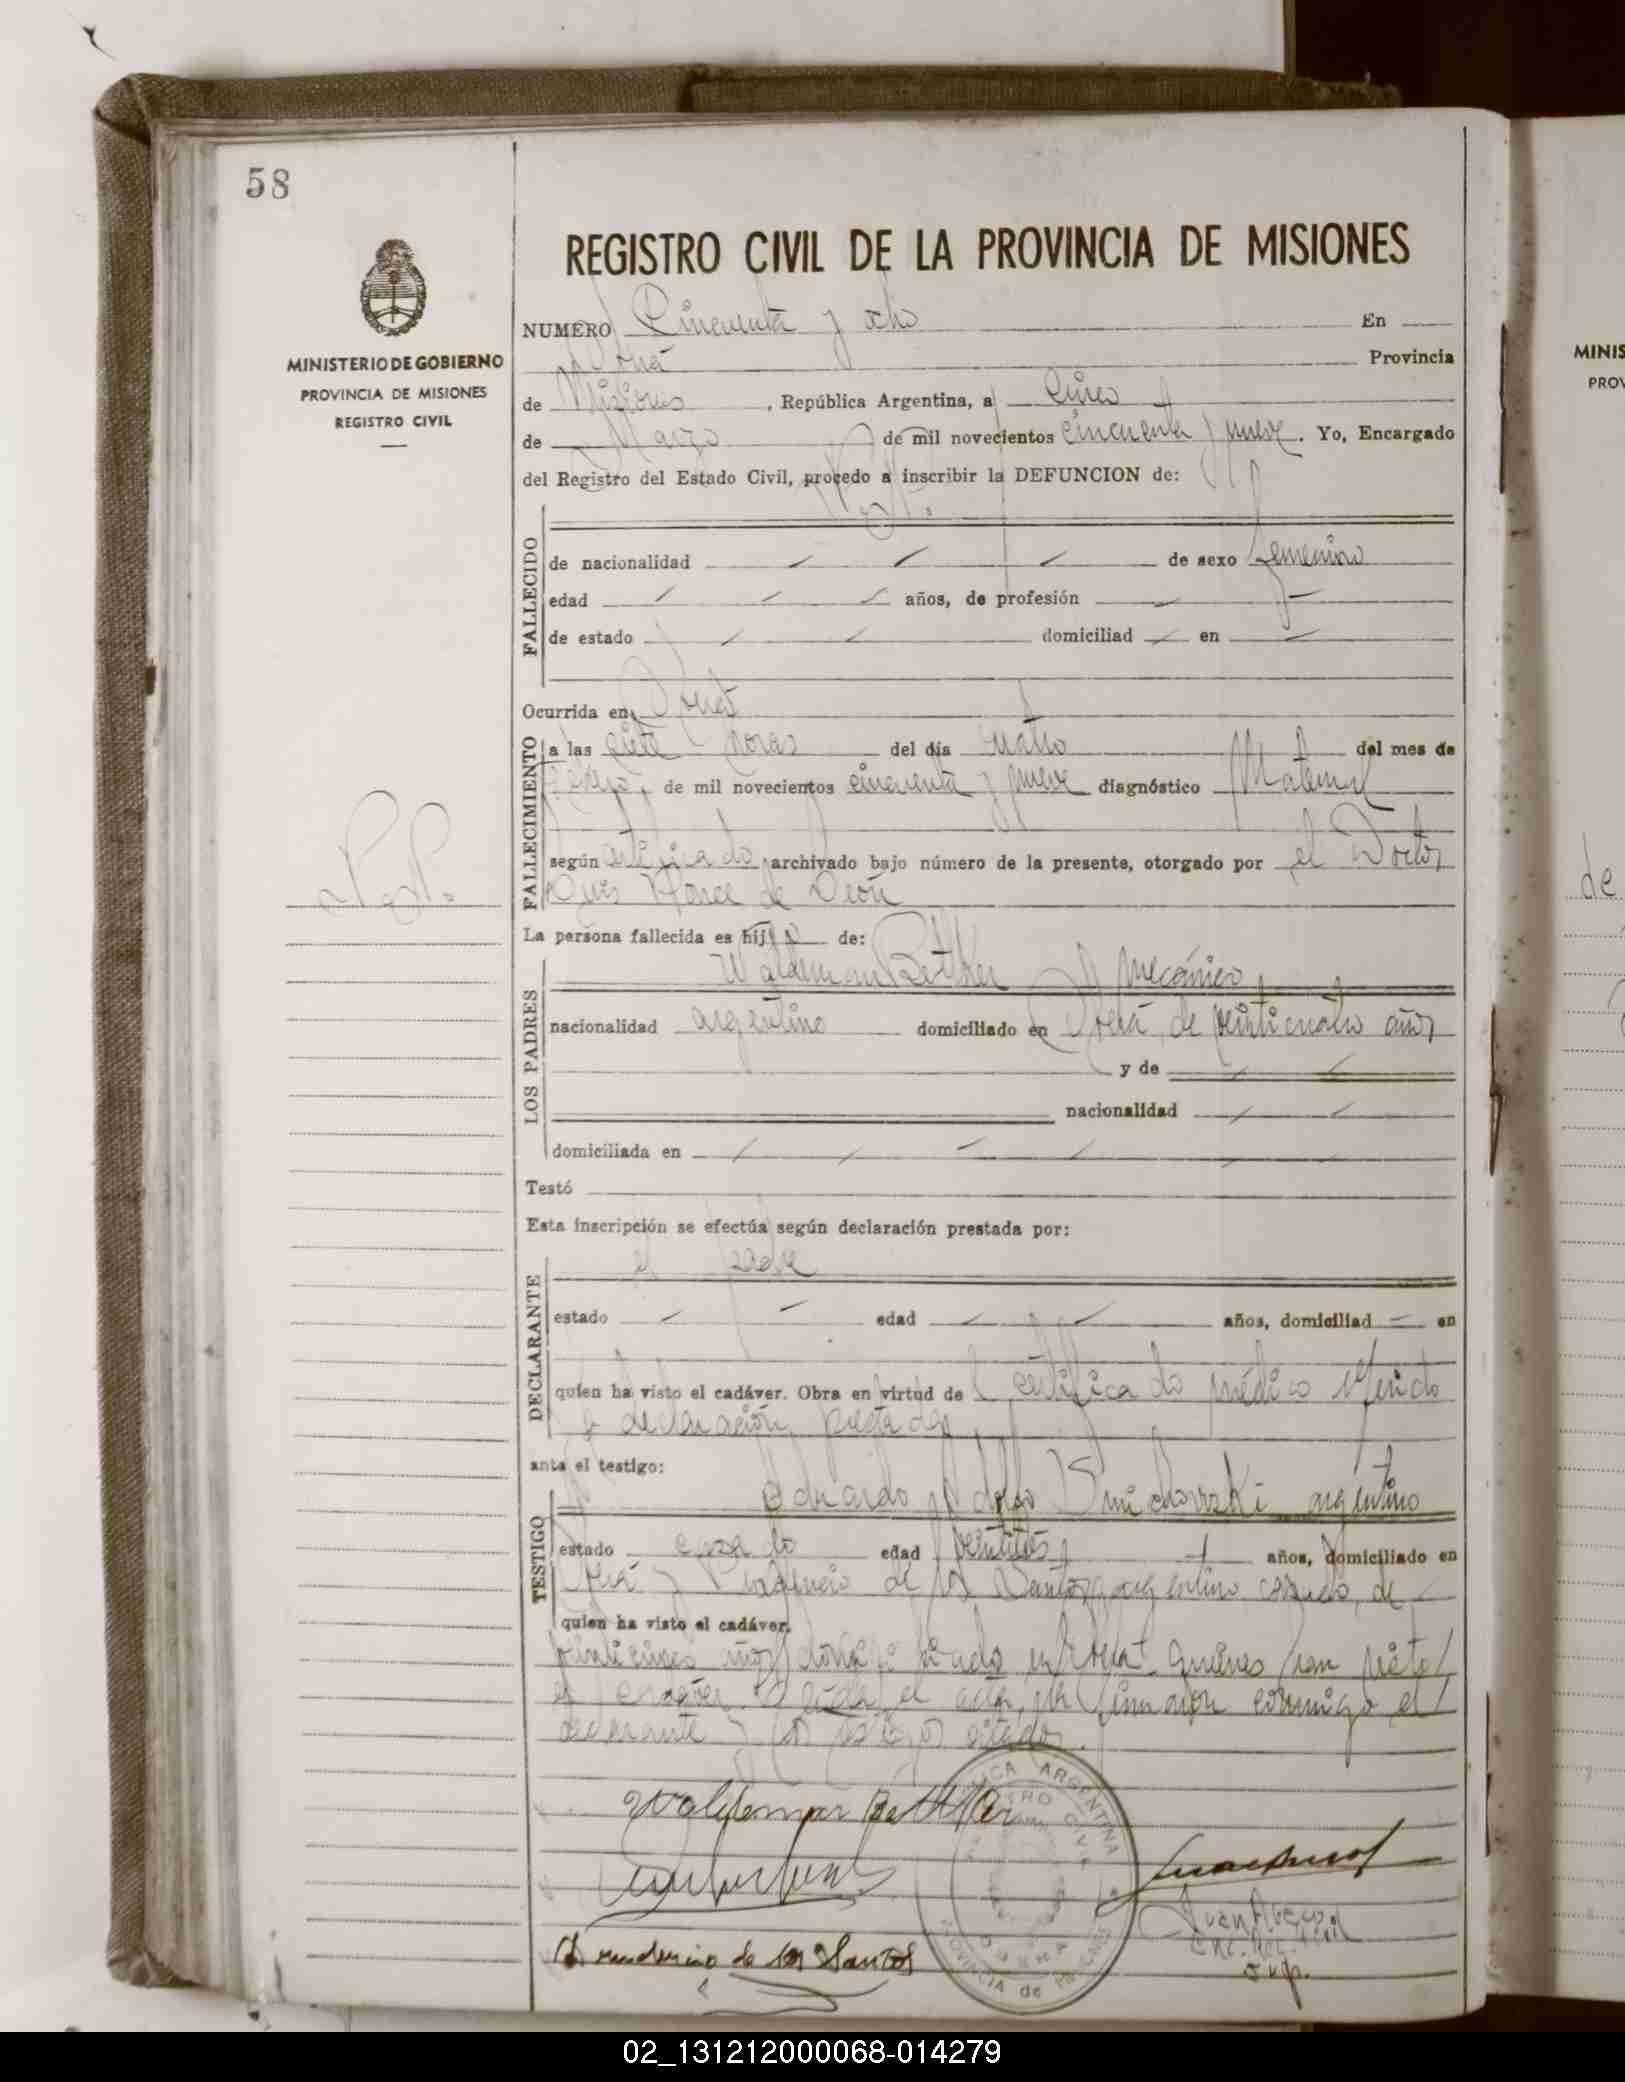 58
REGISTRO CIVIL DE LA PROVINCIA DE MISIONES
MINISTERIO DE GOBIERNO
PROVINCIA DE MISIONES
REGISTRO CIVIL
NUMERO Cincuenta y ocho En
Oberá Provincia
de Misiones, República Argentina, a cinco
de Marzo de mil novecientos cincuenta y nueve. Yo, Encargado
del Registro del Estado Civil, procedo a inscribir la DEFUNCION de:
N.N.
FALLECIDO
de nacionalidad de sexo femenino
edad años, de profesión
de estado domiciliad en
Ocurrida en Oberá
FALLECIMIENTO
a las siete horas del día cuatro del mes de
de mil novecientos cincuenta y nueve diagnóstico
según certificado archivado bajo número de la presente, otorgado por el Doctor
Luis Ponce de León
N.N.
La persona fallecida es hija de:
LOS PADRES
Waldemar Bethker mecánico
nacionalidad argentino domiciliado en Oberá, de veinticuatro años
y de
nacionalidad
domiciliada en
Testó
Esta inscripción se efectúa según declaración prestada por:
DECLARANTE
el padre
estado edad años, domiciliad en
quien ha visto el cadáver. Obra en virtud de l certificado médico referido
y declaración prestada
ante el testigo:
TESTIGO
Eduardo Adolfo argentino
estado casado edad años, domiciliado en
Oberá y de los Santos, argentino casado, de
quien ha visto el cadáver.
veinticinco años, domiciliado en Oberá quienes han visto
el cadáver. Leída el acta, la firmaron conmigo el
declarante y los testigos citados.
Waldemar Bethker
de los Santos
REPUBLICA ARGENTINA
REGISTRO CIVIL
OBERA
PROVINCIA de MISIONES
Enc. Reg. Civil
Sup.
MINIS
PROV
de
02_131212000068-014279